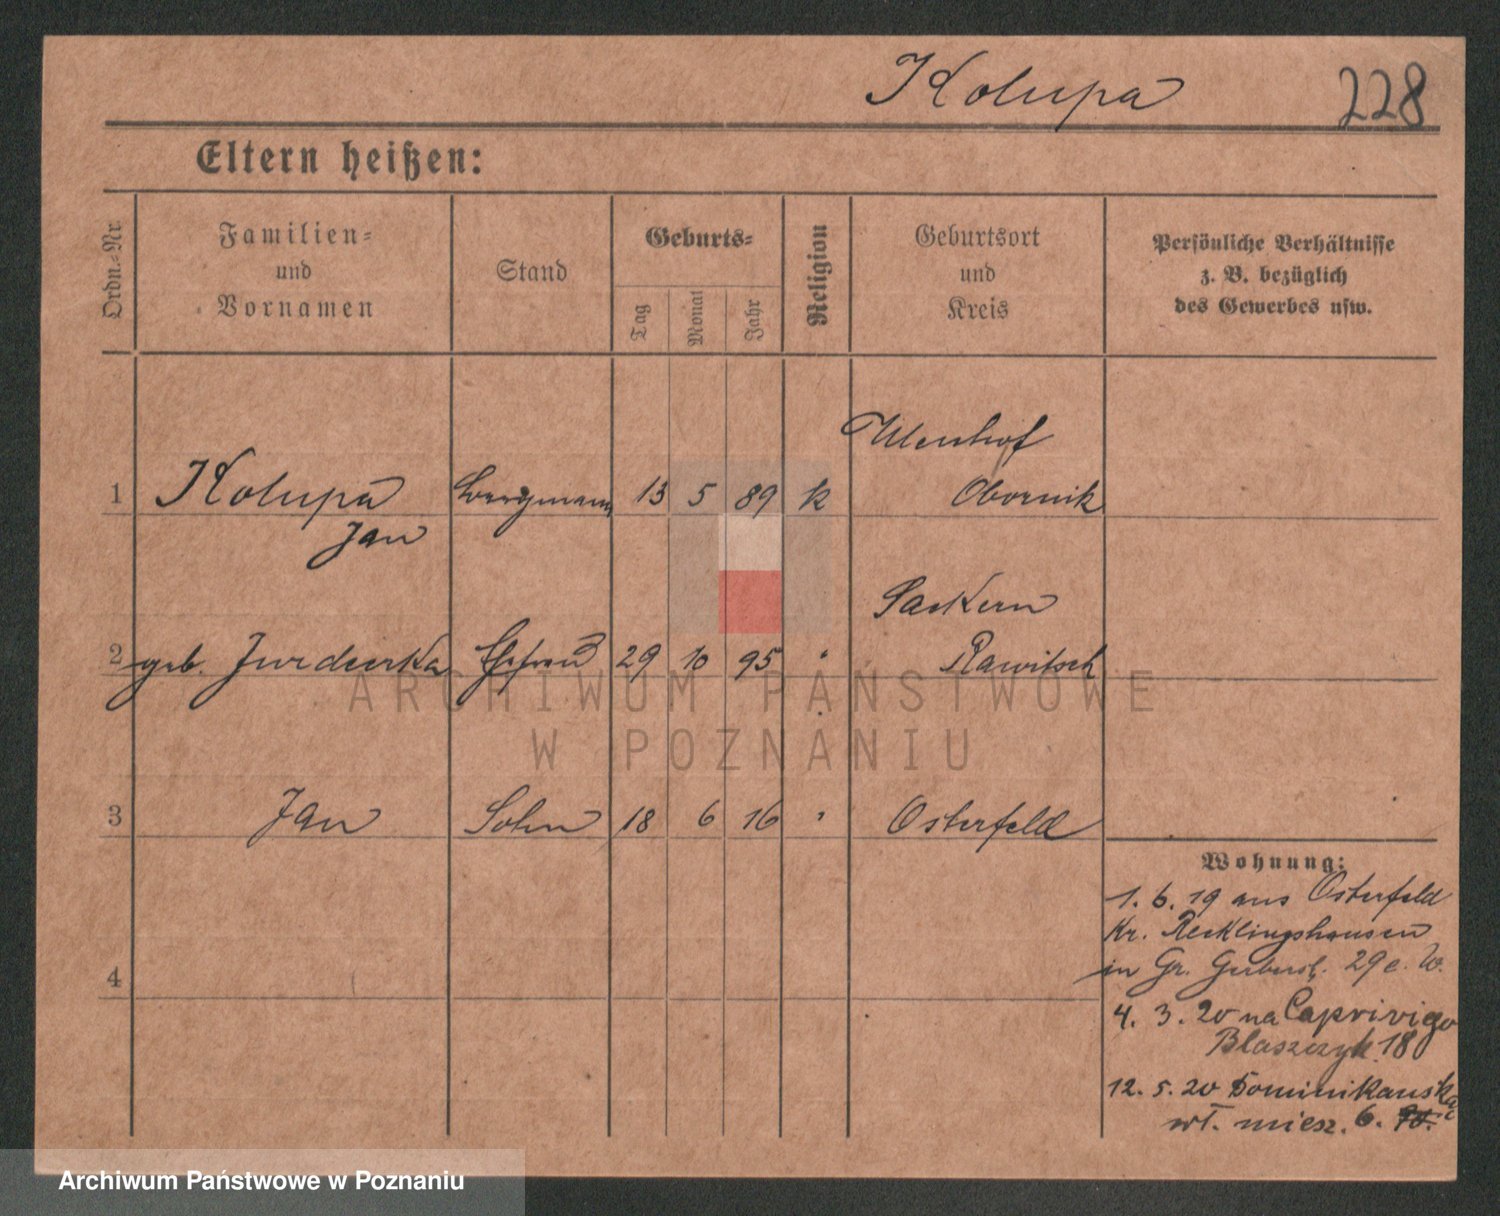 Kolupa 228
Eltern heißen:
Ordn.-Nr.
Familien-
und
Vornamen
Stand
Geburts-
Tag
Monat
Jahr
Religion
Geburtsort
und
Kreis
Persönliche Verhältnisse
z. B. bezüglich
des Gewerbes usw.
1 Kolupa 13 5 89 k Obornik
Jan
Sackern
2 geb. Ehefrau 29 10 95 " Rawitsch
3 Jan Sohn 18 6 16 " Osterfeld
4
Wohnung:
1. 6. 19 aus Osterfeld
Kr. Recklingshausen
in Gr. Gerberstr. 29 e. W.
4. 3. 20 na Caprivigo
Blaszczyk 18
12. 5. 20 Dominikanska
wł. miesz. 6.
ARCHIWUM PAŃSTWOWE
W POZNANIU
Archiwum Państwowe w Poznaniu